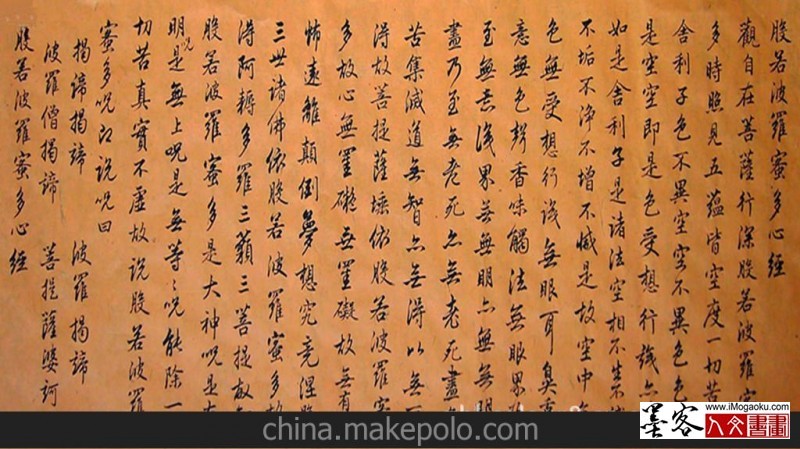 般若波羅蜜多心經
觀自在菩薩行深般若波羅蜜
多時照見五蘊皆空度一切苦
舍利子色不異空空不異色色
是空空即是色受想行識亦
如是舍利子是諸法空相不生不滅
不垢不淨不增不減是故空中
色無受想行識無眼耳鼻舌
意無色聲香味觸法無眼界
至無意識界無無明亦無無明
盡乃至無老死亦無老死盡
苦集滅道無智亦無得以無
得故菩提薩埵依般若波羅蜜
多故心無罣礙無罣礙故無有
怖遠離顛倒夢想究竟涅
三世諸佛依般若波羅蜜多故
得阿耨多羅三藐三菩提故
般若波羅蜜多是大神呪是大
明呪是無上呪是無等〻呪能除一
切苦真實不虛故說般若波羅
蜜多呪即說呪曰
揭諦揭諦 波羅揭諦
波羅僧揭諦 菩提薩婆訶
般若波羅蜜多心經
china.makepolo.com
www.iMogaoku.com
墨客 人文書畫